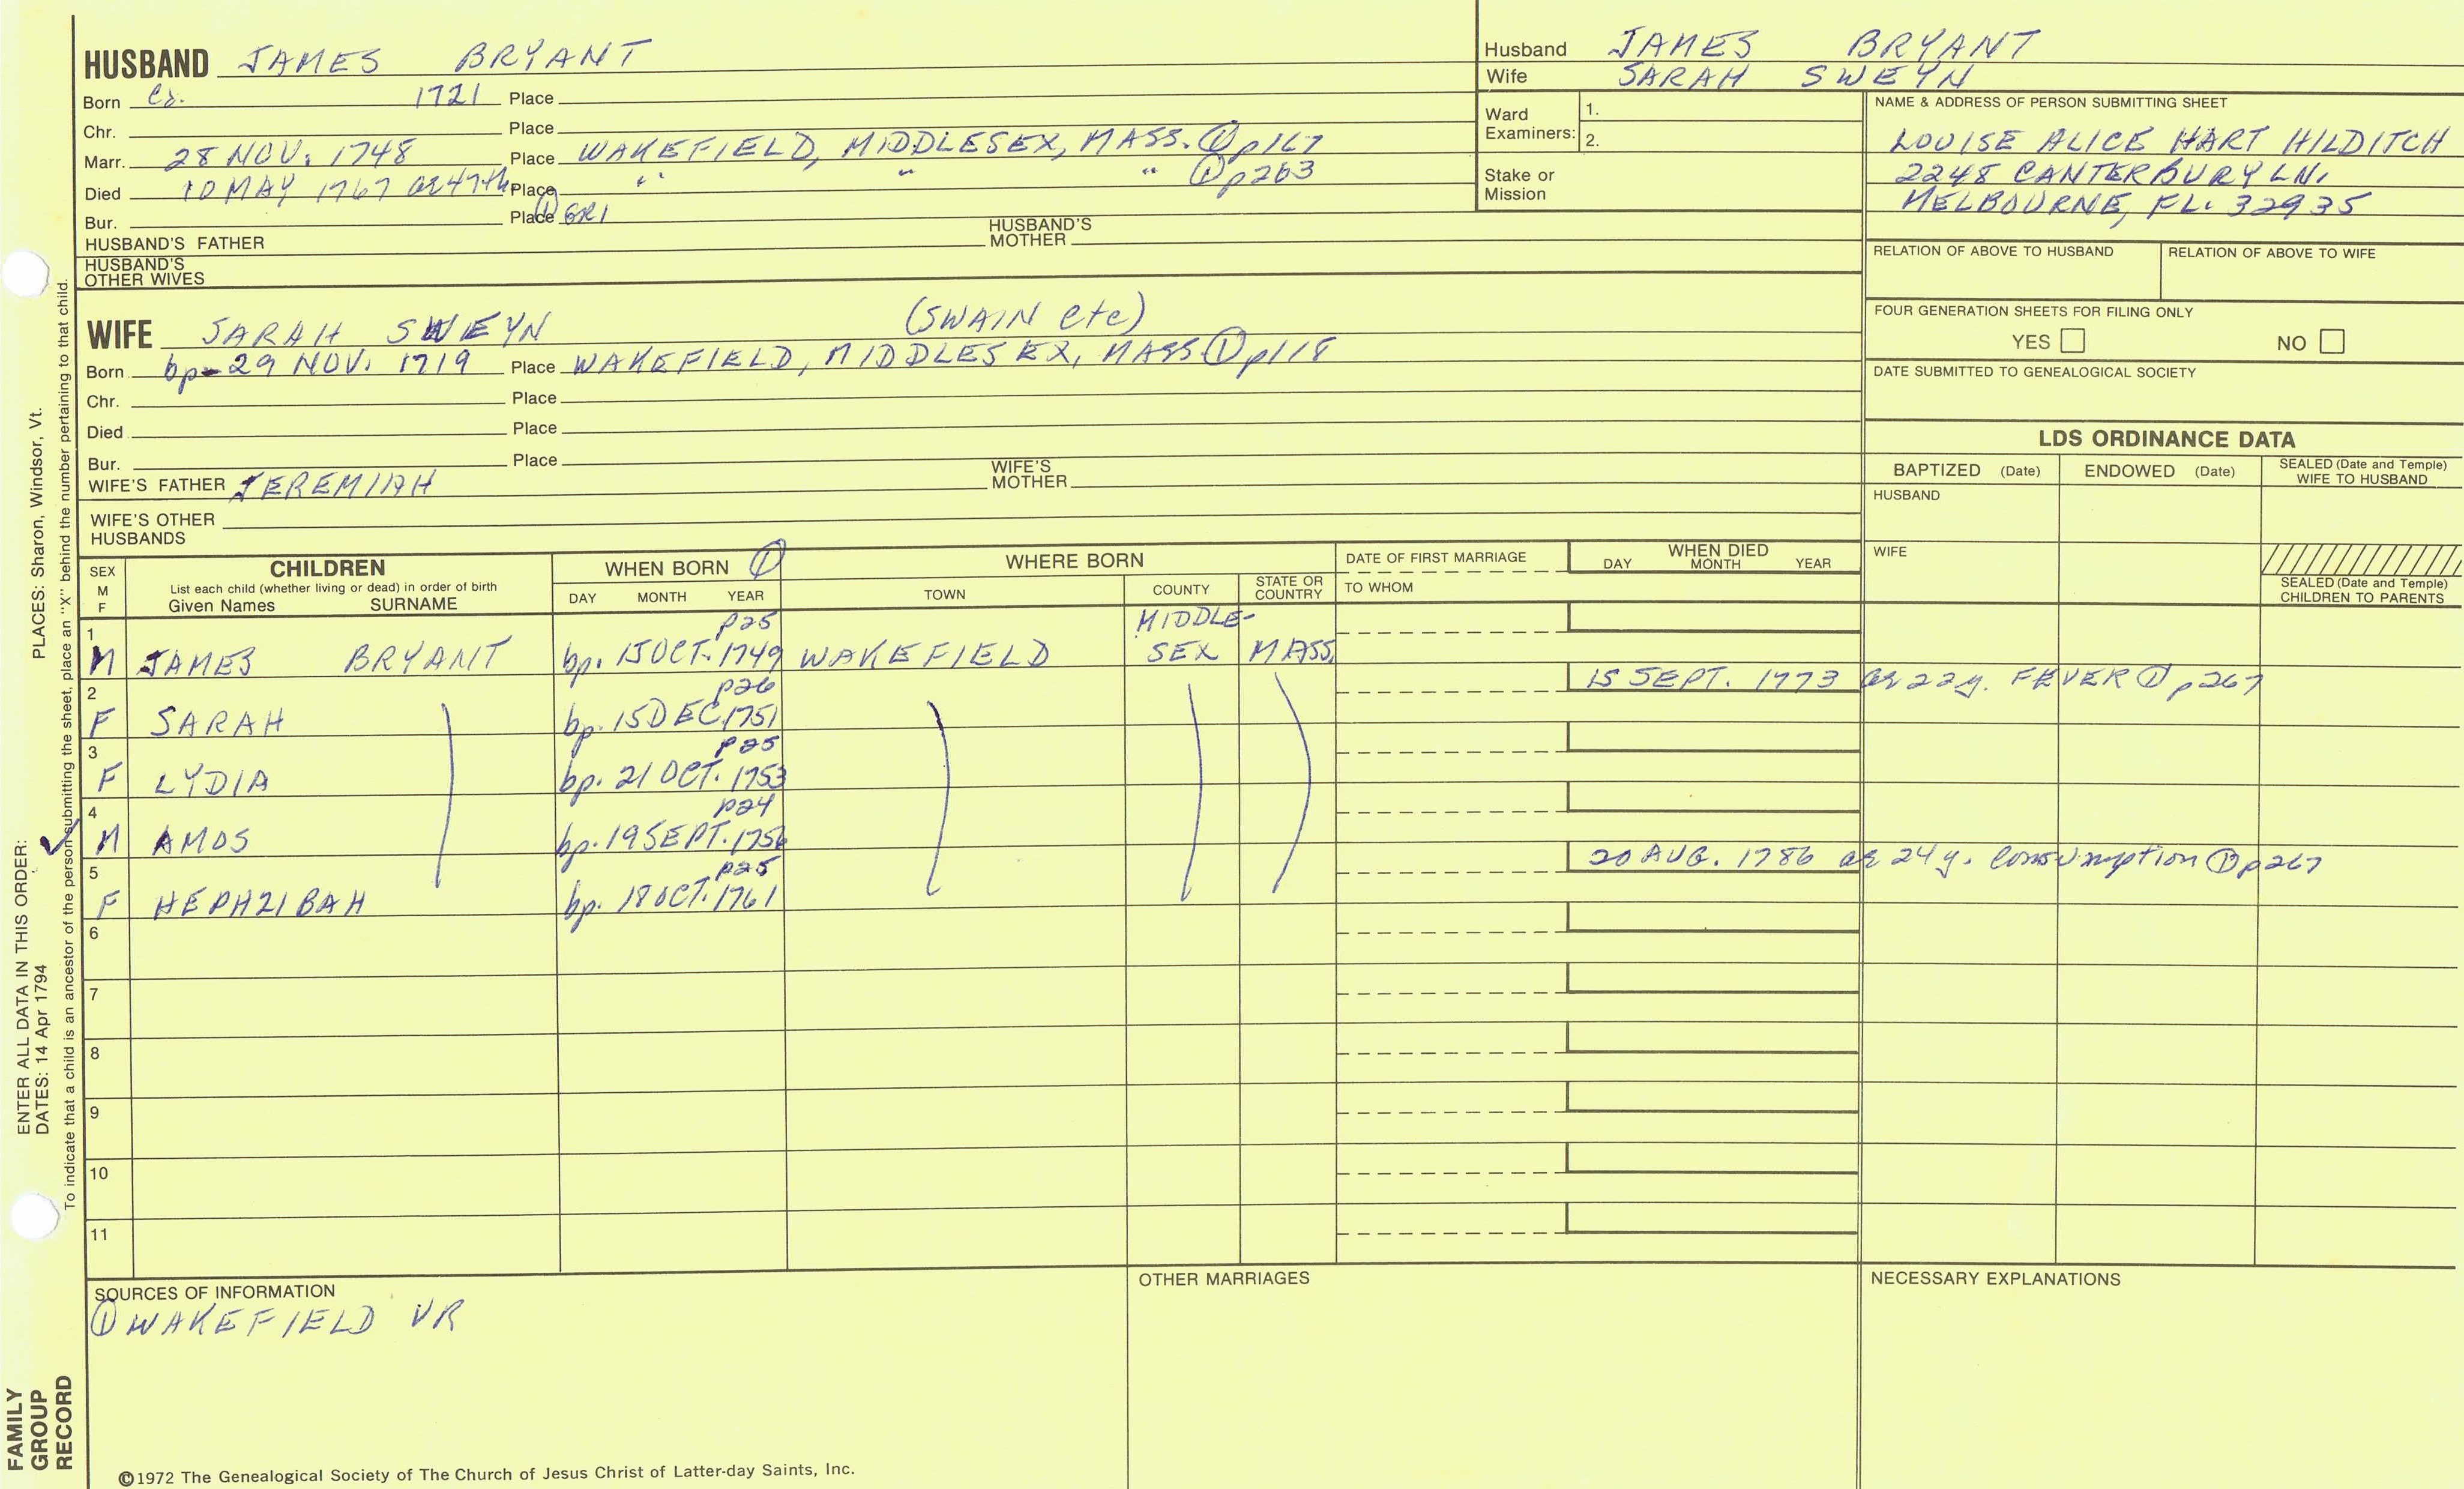 HUSBAND JAMES BRYANT
Born ca. 1721 Place
Chr. Place
Marr. 28 NOV. 1748 Place WAKEFIELD, MIDDLESEX, MASS. ① p167
Died 10 MAY 1767 ae 47th Place " " " ① p263
Bur. Place ① GR1
HUSBAND'S FATHER HUSBAND'S MOTHER
HUSBAND'S OTHER WIVES
Husband JAMES BRYANT
Wife SARAH SWEYN
Ward Examiners: 1.
2.
Stake or Mission
NAME & ADDRESS OF PERSON SUBMITTING SHEET
LOUISE ALICE HART HILDITCH
2248 CANTERBURY LN.
MELBOURNE, FL. 32935
RELATION OF ABOVE TO HUSBAND RELATION OF ABOVE TO WIFE
FOUR GENERATION SHEETS FOR FILING ONLY
YES NO
DATE SUBMITTED TO GENEALOGICAL SOCIETY
WIFE SARAH SWEYN (SWAIN etc)
Born bp 29 NOV. 1719 Place WAKEFIELD, MIDDLESEX, MASS ① p118
Chr. Place
Died Place
Bur. Place
WIFE'S FATHER JEREMIAH WIFE'S MOTHER
WIFE'S OTHER HUSBANDS
LDS ORDINANCE DATA
BAPTIZED (Date) ENDOWED (Date) SEALED (Date and Temple) WIFE TO HUSBAND
HUSBAND
WIFE
SEALED (Date and Temple) CHILDREN TO PARENTS
SEX M F CHILDREN
List each child (whether living or dead) in order of birth
Given Names SURNAME
WHEN BORN ①
DAY MONTH YEAR
WHERE BORN
TOWN COUNTY STATE OR COUNTRY
DATE OF FIRST MARRIAGE
TO WHOM
WHEN DIED
DAY MONTH YEAR
1 p25 MIDDLE-
M JAMES BRYANT bp. 15 OCT. 1749 WAKEFIELD SEX MASS.
2 p26 15 SEPT. 1773 ae 22y. FEVER ① p267
F SARAH bp. 15 DEC 1751
3 p25
F LYDIA bp. 21 OCT. 1753
4 p24
M AMOS bp. 19 SEPT. 1756
5 p25 20 AUG. 1786 ae 24y. Consumption ① p267
F HEPHZIBAH bp. 18 OCT. 1761
6
7
8
9
10
11
SOURCES OF INFORMATION
① WAKEFIELD VR
OTHER MARRIAGES
NECESSARY EXPLANATIONS
©1972 The Genealogical Society of The Church of Jesus Christ of Latter-day Saints, Inc.
FAMILY GROUP RECORD
ENTER ALL DATA IN THIS ORDER:
DATES: 14 Apr 1794 PLACES: Sharon, Windsor, Vt.
To indicate that a child is an ancestor of the person submitting the sheet, place an "X" behind the number pertaining to that child.